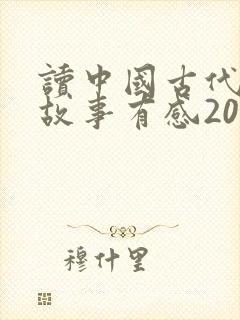 讀中國古代
故事有感20
穆什里